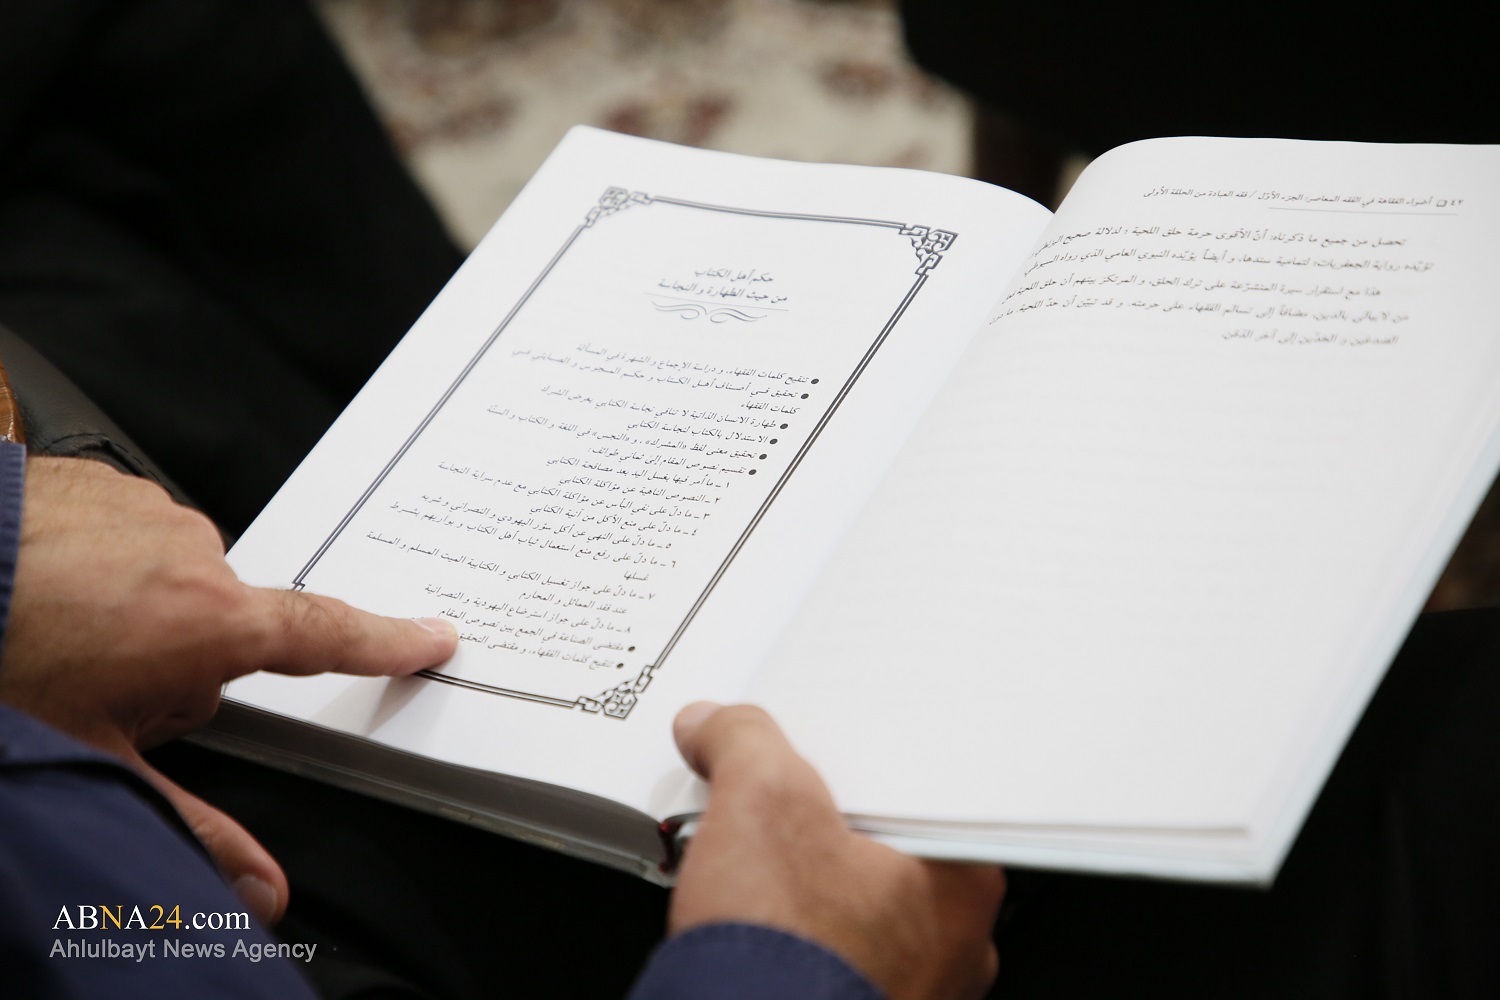 ٤٢ أضواء الفقاهة في الفقه المعاصر: الجزء الأوّل / فقه العبادة من الحلقة الأولى
تحصل من جميع ما ذكرناه: أنّ الأقوى حرمة حلق اللحية؛ لدلالة صحيح
تؤيّده رواية الجعفريات؛ لتمامية سندها. و أيضاً يؤيّده النبوي العامي الذي رواه السيوطي
هذا مع استقرار سيرة المتشرّعة على ترك الحلق، و المرتكز بينهم أن حلق اللحية
من لا يبالي بالدين. مضافاً إلى تسالم الفقهاء على حرمته. و قد تبيّن أن حدّ اللحية، ما دون
الصدغين و الخدّين إلى آخر الذقن.
حكم أهل الكتاب
من حيث الطهارة و النجاسة
● تنقيح كلمات الفقهاء، و دراسة الإجماع و الشهرة في المسألة
● تحقيق فـي أصنـاف أهـل الكـتاب و حكـم المـجوس و الصـابئي فـي
كلمات الفقهاء
● طهارة الانسان الذاتية لا تنافي نجاسة الكتابي بعرض الشرك
● الاستدلال بالكتاب لنجاسة الكتابي
● تحقيق معنى لفظ «المشرك»، و «النجس» في اللغة و الكتاب و السنّة
● تقسيم نصوص المقام إلى ثماني طوائف:
١ ـ ما أمر فيها بغسل اليد بعد مصافحة الكتابي
٢ ـ النصوص الناهية عن مؤاكلة الكتابي
٣ ـ ما دلّ على نفي البأس عن مؤاكلة الكتابي مع عدم سراية النجاسة
٤ ـ ما دلّ على منع الأكل من آنية الكتابي
٥ ـ ما دلّ على النهي عن أكل سؤر اليهودي و النصراني و شربه
٦ ـ ما دلّ على رفع منع استعمال ثياب أهل الكتاب و بواريهم بشرط
غسلها
٧ ـ ما دلّ على جواز تغسيل الكتابي و الكتابية الميت المسلم و المسلمة
عند فقد المماثل و المحارم
٨ ـ ما دلّ على جواز استرضاع اليهودية و النصرانية
● مقتضى الصناعة في الجمع بين نصوص المقام
● تنقيح كلمات الفقهاء، و مقتضى التحقيق
ABNA24.com
Ahlulbayt News Agency